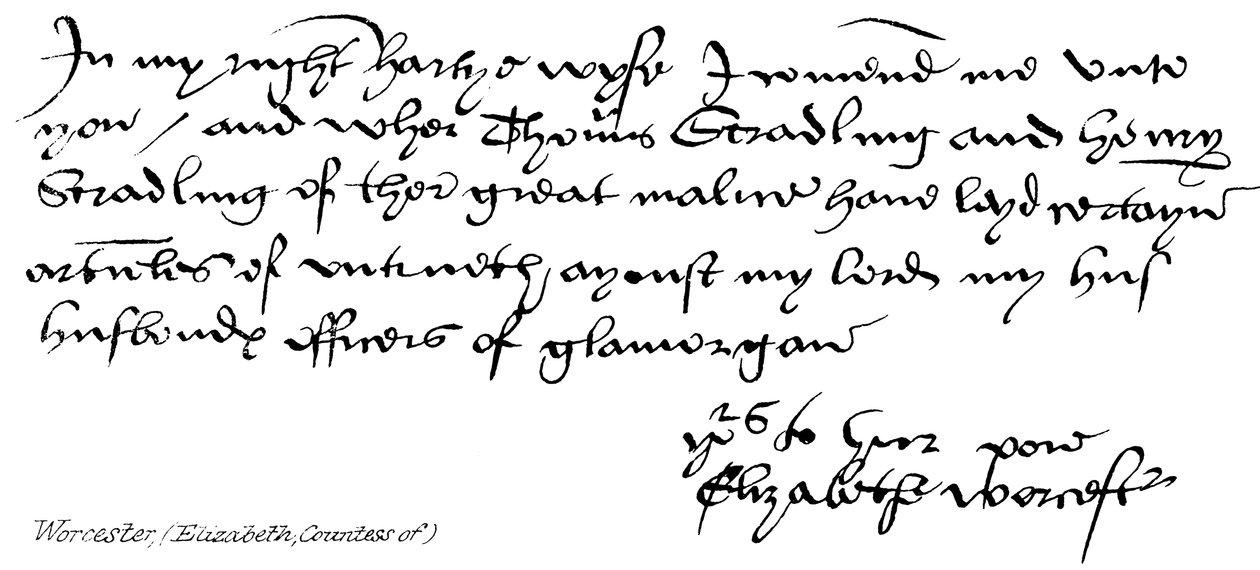 In my right hartye wyse I comend me unto
you / and wher Thomas Stradling and henry
Stradling of ther great malice have layd certayn
articles of untrueth, ayenst my lord my hus
husbondes officers of glamorgan
yors to hir power
Elizabeth Worcester
Worcester, (Elizabeth, Countess of)